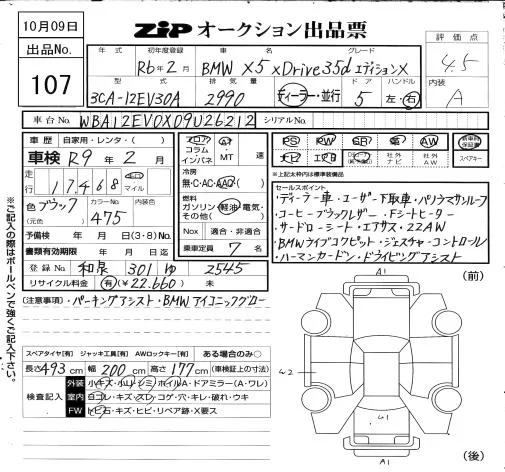 10月09日
ZIP オークション出品票
出品No.
107
年式 初年度登録 車名 グレード
R6年2月 BMW X5 xDrive35d エディションX
評価点
4.5
型式 排気量 ドア ハンドル
3CA-12EV30A 2990 ディーラー・並行 5 左・右
内装
A
車台No. WBA12EV0X09U26212 シリアルNo.
車歴 自家用・レンタ・( )
車検 R9年2月
走行 17,468 km マイル
色 ブラック カラーNo. 475 内装色
(元色)
予備検 年 月 日(3・8)No.
書類有効期限 年 月 日迄
登録No. 和泉 301 ゆ 2545
リサイクル料金 有(¥22,660) 未
フロア AT
コラム
インパネ MT 速
冷房
無・C・AC・AAC( )
燃料
ガソリン・軽油・電気・
その他( )
Nox 適合・非適合
乗車定員 7 名
PS PW SR 革 AW 新車時保証書
ナビ エアB 社外ナビ 社外AW スペアキー
★上記文字枠は標準装備品
セールスポイント
・ディーラー車・ユーザー下取車・パノラマサンルーフ
・コーヒーブラックレザー・Dシートヒーター
・サードローシート・エアサス・22AW
・BMWライブコクピット・ジェスチャーコントロール
・ハーマンカードン・ドライビングアシスト
(注意事項)・パーキングアシスト・BMWアイコニックグロー
※ご記入の際はボールペンで強くご記入下さい。
スペアタイヤ[有] ジャッキ工具[有] AWロックキー[有] ある場合のみ○
長さ493cm 幅200cm 高さ177cm(車検証上の寸法)
検査記入
外装 小キズ・小凹・シミ・ホイルA・ドアミラー(A・ワレ)
室内 ヨゴレ・キズ・スレ・コゲ・穴・キレ・破れ・ウキ
FW トビ石・キズ・ヒビ・リペア跡・X要ス
(前)
A1
W2
G1
A1
(後)